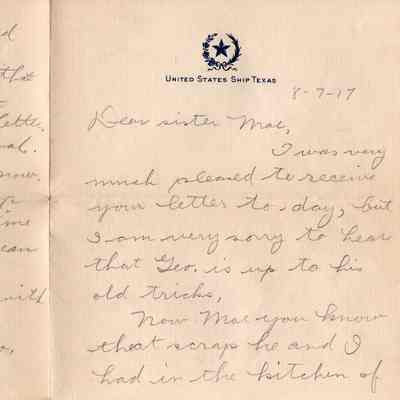 United States Ship Texas
8-7-17
Dear sister Mae,
I was very
much pleased to receive
your letter to-day, but
I am very sorry to hear
that Geo. is up to his
old tricks,
Now Mae you know
that scrap he and I
had in the kitchen of
that
letter
ime
ean
with